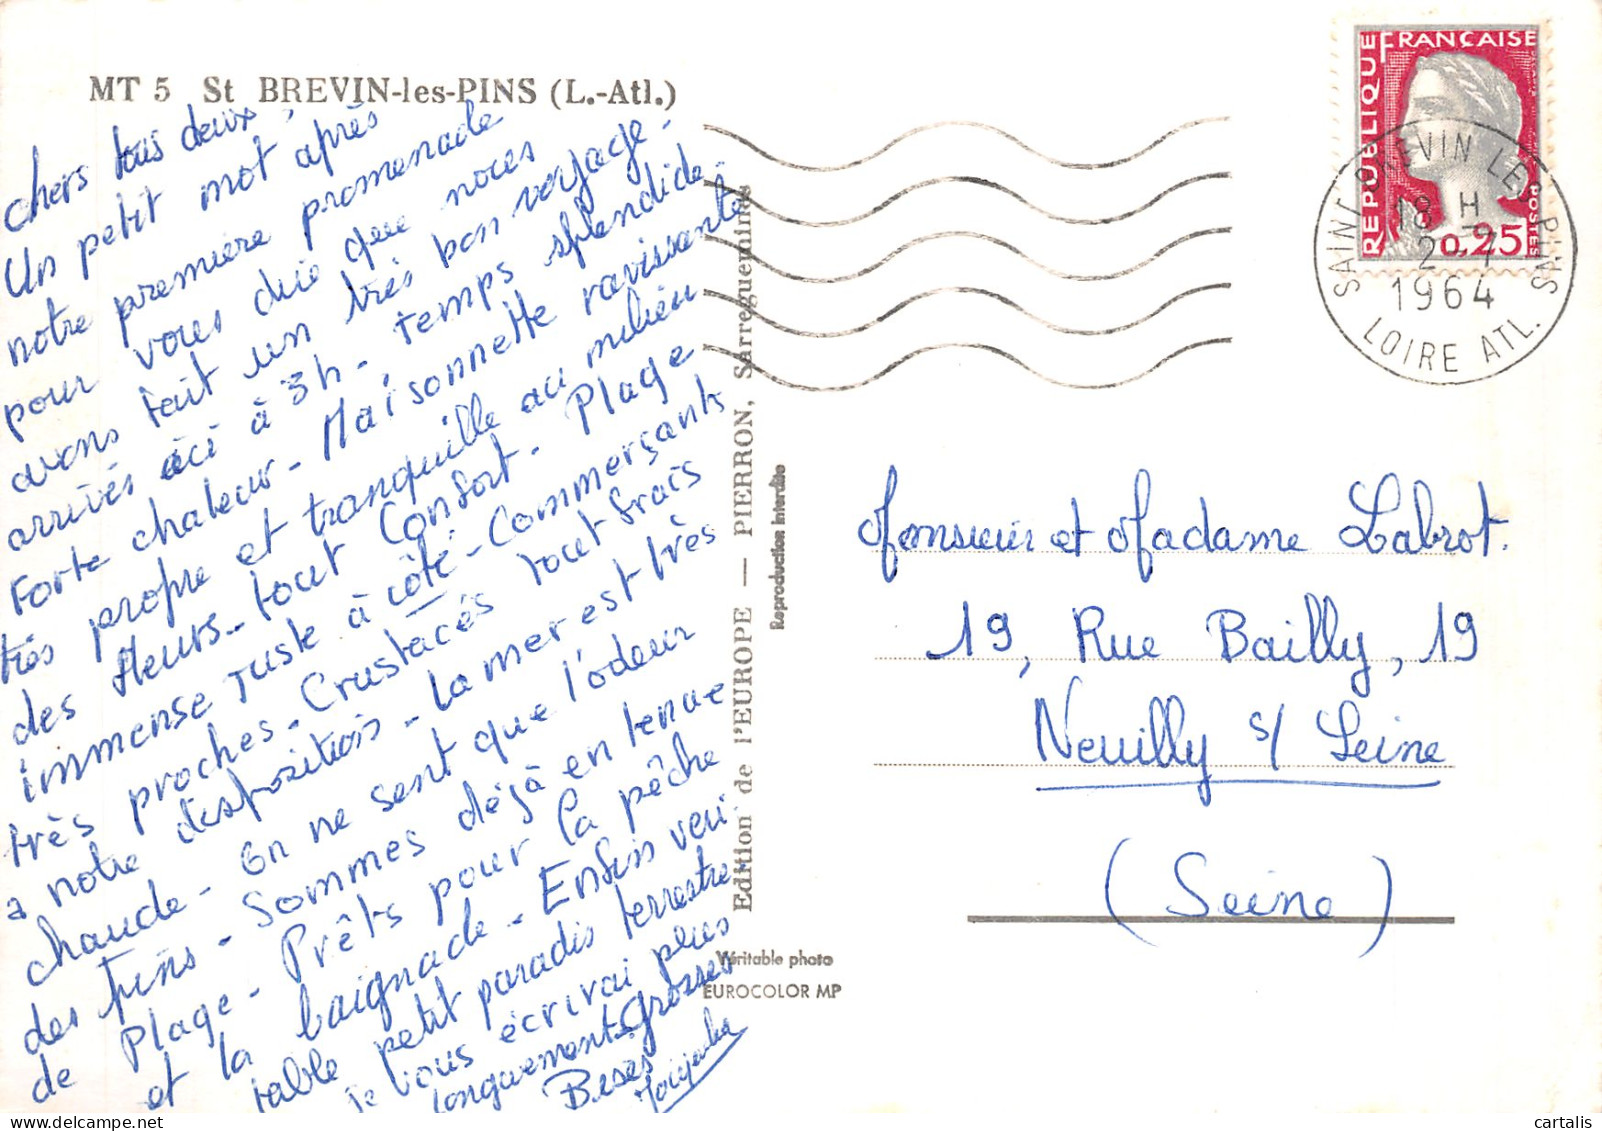 MT 5 St BREVIN-les-PINS (L.-Atl.)
Chers tous deux,
Un petit mot après
notre première promenade
pour vous dire que nous
avons fait un très bon voyage -
arrivés ici à 3h - Temps splendide -
Forte chaleur - Maisonnette ravissante
très propre et tranquille au milieu
des fleurs - tout confort - Plage
immense juste à côté - Commerçants
très proches - Crustacés tout frais
a notre disposition - La mer est très
chaude - On ne sent que l'odeur
des pins - Sommes déjà en tenue
de plage - Prêts pour la pêche
et la baignade - Enfin véri-
table petit paradis terrestre -
je vous écrivai plus
longuement - Grosses
Bises
Edition de l'EUROPE — PIERRON, Sarreguemines
Reproduction interdite
Véritable photo
EUROCOLOR MP
REPUBLIQUE FRANÇAISE
0,25
POSTES
SAINT BREVIN LES PINS
18 H
2 - 7
1964
LOIRE ATL.
Monsieur et Madame Labrot.
19, Rue Bailly, 19
Neuilly s/ Seine
(Seine)
cartalis
delcampe.net